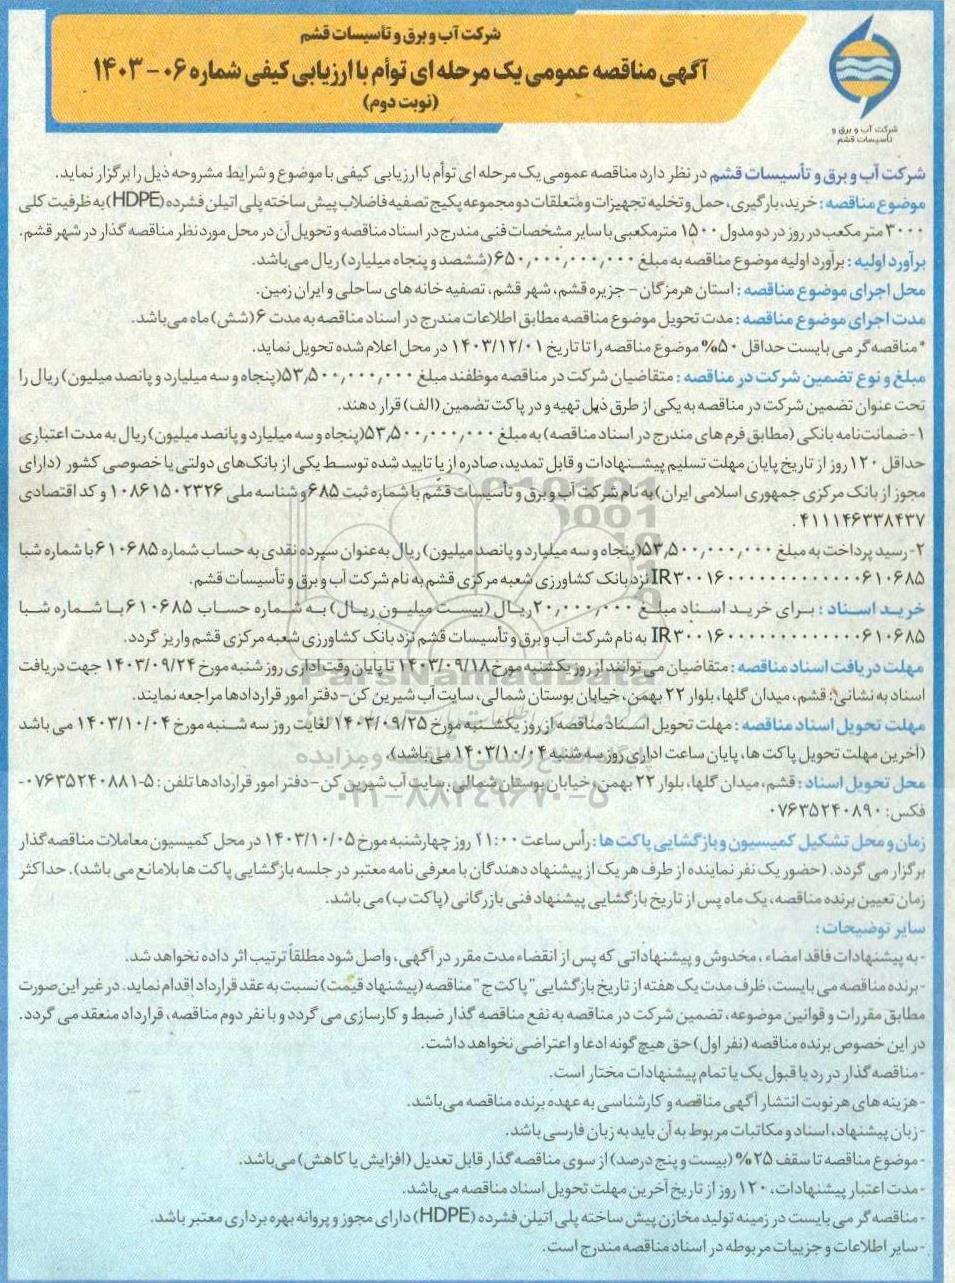 شرکت آب و برق و تأسیسات قشم
آگهی مناقصه عمومی یک مرحله ای توأم با ارزیابی کیفی شماره ۰۶ - ۱۴۰۳
(نوبت دوم)
شرکت آب و برق و
تأسیسات قشم
شرکت آب و برق و تأسیسات قشم در نظر دارد مناقصه عمومی یک مرحله ای توأم با ارزیابی کیفی با موضوع و شرایط مشروحه ذیل را برگزار نماید.
موضوع مناقصه : خرید، بارگیری، حمل و تخلیه تجهیزات و متعلقات دو مجموعه پکیج تصفیه فاضلاب پیش ساخته پلی اتیلن فشرده (HDPE) به ظرفیت کلی
۳۰۰۰ متر مکعب در روز در دو مدول ۱۵۰۰ مترمکعبی با سایر مشخصات فنی مندرج در اسناد مناقصه و تحویل آن در محل مورد نظر مناقصه گذار در شهر قشم.
برآورد اولیه : برآورد اولیه موضوع مناقصه به مبلغ ۶۵۰,۰۰۰,۰۰۰,۰۰۰ (ششصد و پنجاه میلیارد) ریال می‌باشد.
محل اجرای موضوع مناقصه : استان هرمزگان - جزیره قشم، شهر قشم، تصفیه خانه های ساحلی و ایران زمین.
مدت اجرای موضوع مناقصه : مدت تحویل موضوع مناقصه مطابق اطلاعات مندرج در اسناد مناقصه به مدت ۶ (شش) ماه می‌باشد.
*مناقصه گر می بایست حداقل ۵۰% موضوع مناقصه را تا تاریخ ۱۴۰۳/۱۲/۰۱ در محل اعلام شده تحویل نماید.
مبلغ و نوع تضمین شرکت در مناقصه : متقاضیان شرکت در مناقصه موظفند مبلغ ۵۳,۵۰۰,۰۰۰,۰۰۰ (پنجاه و سه میلیارد و پانصد میلیون) ریال را
تحت عنوان تضمین شرکت در مناقصه به یکی از طرق ذیل تهیه و در پاکت تضمین (الف) قرار دهند.
۱- ضمانت‌نامه بانکی (مطابق فرم های مندرج در اسناد مناقصه) به مبلغ ۵۳,۵۰۰,۰۰۰,۰۰۰ (پنجاه و سه میلیارد و پانصد میلیون) ریال به مدت اعتباری
حداقل ۱۲۰ روز از تاریخ پایان مهلت تسلیم پیشنهادات و قابل تمدید، صادره از یا تایید شده توسط یکی از بانک‌های دولتی یا خصوصی کشور (دارای
مجوز از بانک مرکزی جمهوری اسلامی ایران) به نام شرکت آب و برق و تأسیسات قشم با شماره ثبت ۶۸۵ و شناسه ملی ۱۰۸۶۱۵۰۲۳۲۶ و کد اقتصادی
۴۱۱۱۴۶۳۳۸۴۳۷ .
۲- رسید پرداخت به مبلغ ۵۳,۵۰۰,۰۰۰,۰۰۰ (پنجاه و سه میلیارد و پانصد میلیون) ریال به‌عنوان سپرده نقدی به حساب شماره ۶۱۰۶۸۵ با شماره شبا
IR۳۰۰۱۶۰۰۰۰۰۰۰۰۰۰۰۰۰۰۶۱۰۶۸۵ نزد بانک کشاورزی شعبه مرکزی قشم به نام شرکت آب و برق و تأسیسات قشم.
خرید اسناد : برای خرید اسناد مبلغ ۲۰,۰۰۰,۰۰۰ ریال (بیست میلیون ریال) به شماره حساب ۶۱۰۶۸۵ با شماره شبا
IR۳۰۰۱۶۰۰۰۰۰۰۰۰۰۰۰۰۰۰۶۱۰۶۸۵ به نام شرکت آب و برق و تأسیسات قشم نزد بانک کشاورزی شعبه مرکزی قشم واریز گردد.
مهلت دریافت اسناد مناقصه : متقاضیان می‌توانند از روز یکشنبه مورخ ۱۴۰۳/۰۹/۱۸ تا پایان وقت اداری روز شنبه مورخ ۱۴۰۳/۰۹/۲۴ جهت دریافت
اسناد به نشانی: قشم، میدان گلها، بلوار ۲۲ بهمن، خیابان بوستان شمالی، سایت آب شیرین کن-دفتر امور قراردادها مراجعه نمایند.
مهلت تحویل اسناد مناقصه : مهلت تحویل اسناد مناقصه از روز یکشنبه مورخ ۱۴۰۳/۰۹/۲۵ لغایت روز سه شنبه مورخ ۱۴۰۳/۱۰/۰۴ می باشد
(آخرین مهلت تحویل پاکت ها، پایان ساعت اداری روز سه شنبه ۱۴۰۳/۱۰/۰۴ می باشد).
محل تحویل اسناد : قشم، میدان گلها، بلوار ۲۲ بهمن، خیابان بوستان شمالی، سایت آب شیرین کن - دفتر امور قراردادها تلفن : ۵-۰۷۶۳۵۲۴۰۸۸۱-
فکس: ۰۷۶۳۵۲۴۰۸۹۰
زمان و محل تشکیل کمیسیون و بازگشایی پاکت ها : رأس ساعت ۱۱:۰۰ روز چهارشنبه مورخ ۱۴۰۳/۱۰/۰۵ در محل کمیسیون معاملات مناقصه گذار
برگزار می گردد. (حضور یک نفر نماینده از طرف هر یک از پیشنهاد دهندگان با معرفی نامه معتبر در جلسه بازگشایی پاکت ها بلامانع می باشد). حداکثر
زمان تعیین برنده مناقصه، یک ماه پس از تاریخ بازگشایی پیشنهاد فنی بازرگانی (پاکت ب) می باشد.
سایر توضیحات :
- به پیشنهادات فاقد امضاء ، مخدوش و پیشنهاداتی که پس از انقضاء مدت مقرر در آگهی، واصل شود مطلقاً ترتیب اثر داده نخواهد شد.
- برنده مناقصه می بایست، ظرف مدت یک هفته از تاریخ بازگشایی "پاکت ج" مناقصه (پیشنهاد قیمت) نسبت به عقد قرارداد اقدام نماید. در غیر این صورت
مطابق مقررات و قوانین موضوعه، تضمین شرکت در مناقصه به نفع مناقصه گذار ضبط و کارسازی می گردد و با نفر دوم مناقصه، قرارداد منعقد می گردد.
در این خصوص برنده مناقصه (نفر اول) حق هیچ گونه ادعا و اعتراضی نخواهد داشت.
- مناقصه گذار در رد یا قبول یک یا تمام پیشنهادات مختار است.
- هزینه های هر نوبت انتشار آگهی مناقصه و کارشناسی به عهده برنده مناقصه می‌باشد.
- زبان پیشنهاد، اسناد و مکاتبات مربوط به آن باید به زبان فارسی باشد.
- موضوع مناقصه تا سقف ۲۵% (بیست و پنج درصد) از سوی مناقصه گذار قابل تعدیل (افزایش یا کاهش) می‌باشد.
- مدت اعتبار پیشنهادات، ۱۲۰ روز از تاریخ آخرین مهلت تحویل اسناد مناقصه می‌باشد.
- مناقصه گر می بایست در زمینه تولید مخازن پیش ساخته پلی اتیلن فشرده (HDPE) دارای مجوز و پروانه بهره برداری معتبر باشد.
- سایر اطلاعات و جزییات مربوطه در اسناد مناقصه مندرج است.
ParsNamadData
۰۲۱-۸۸۳۴۹۶۷۰-۵